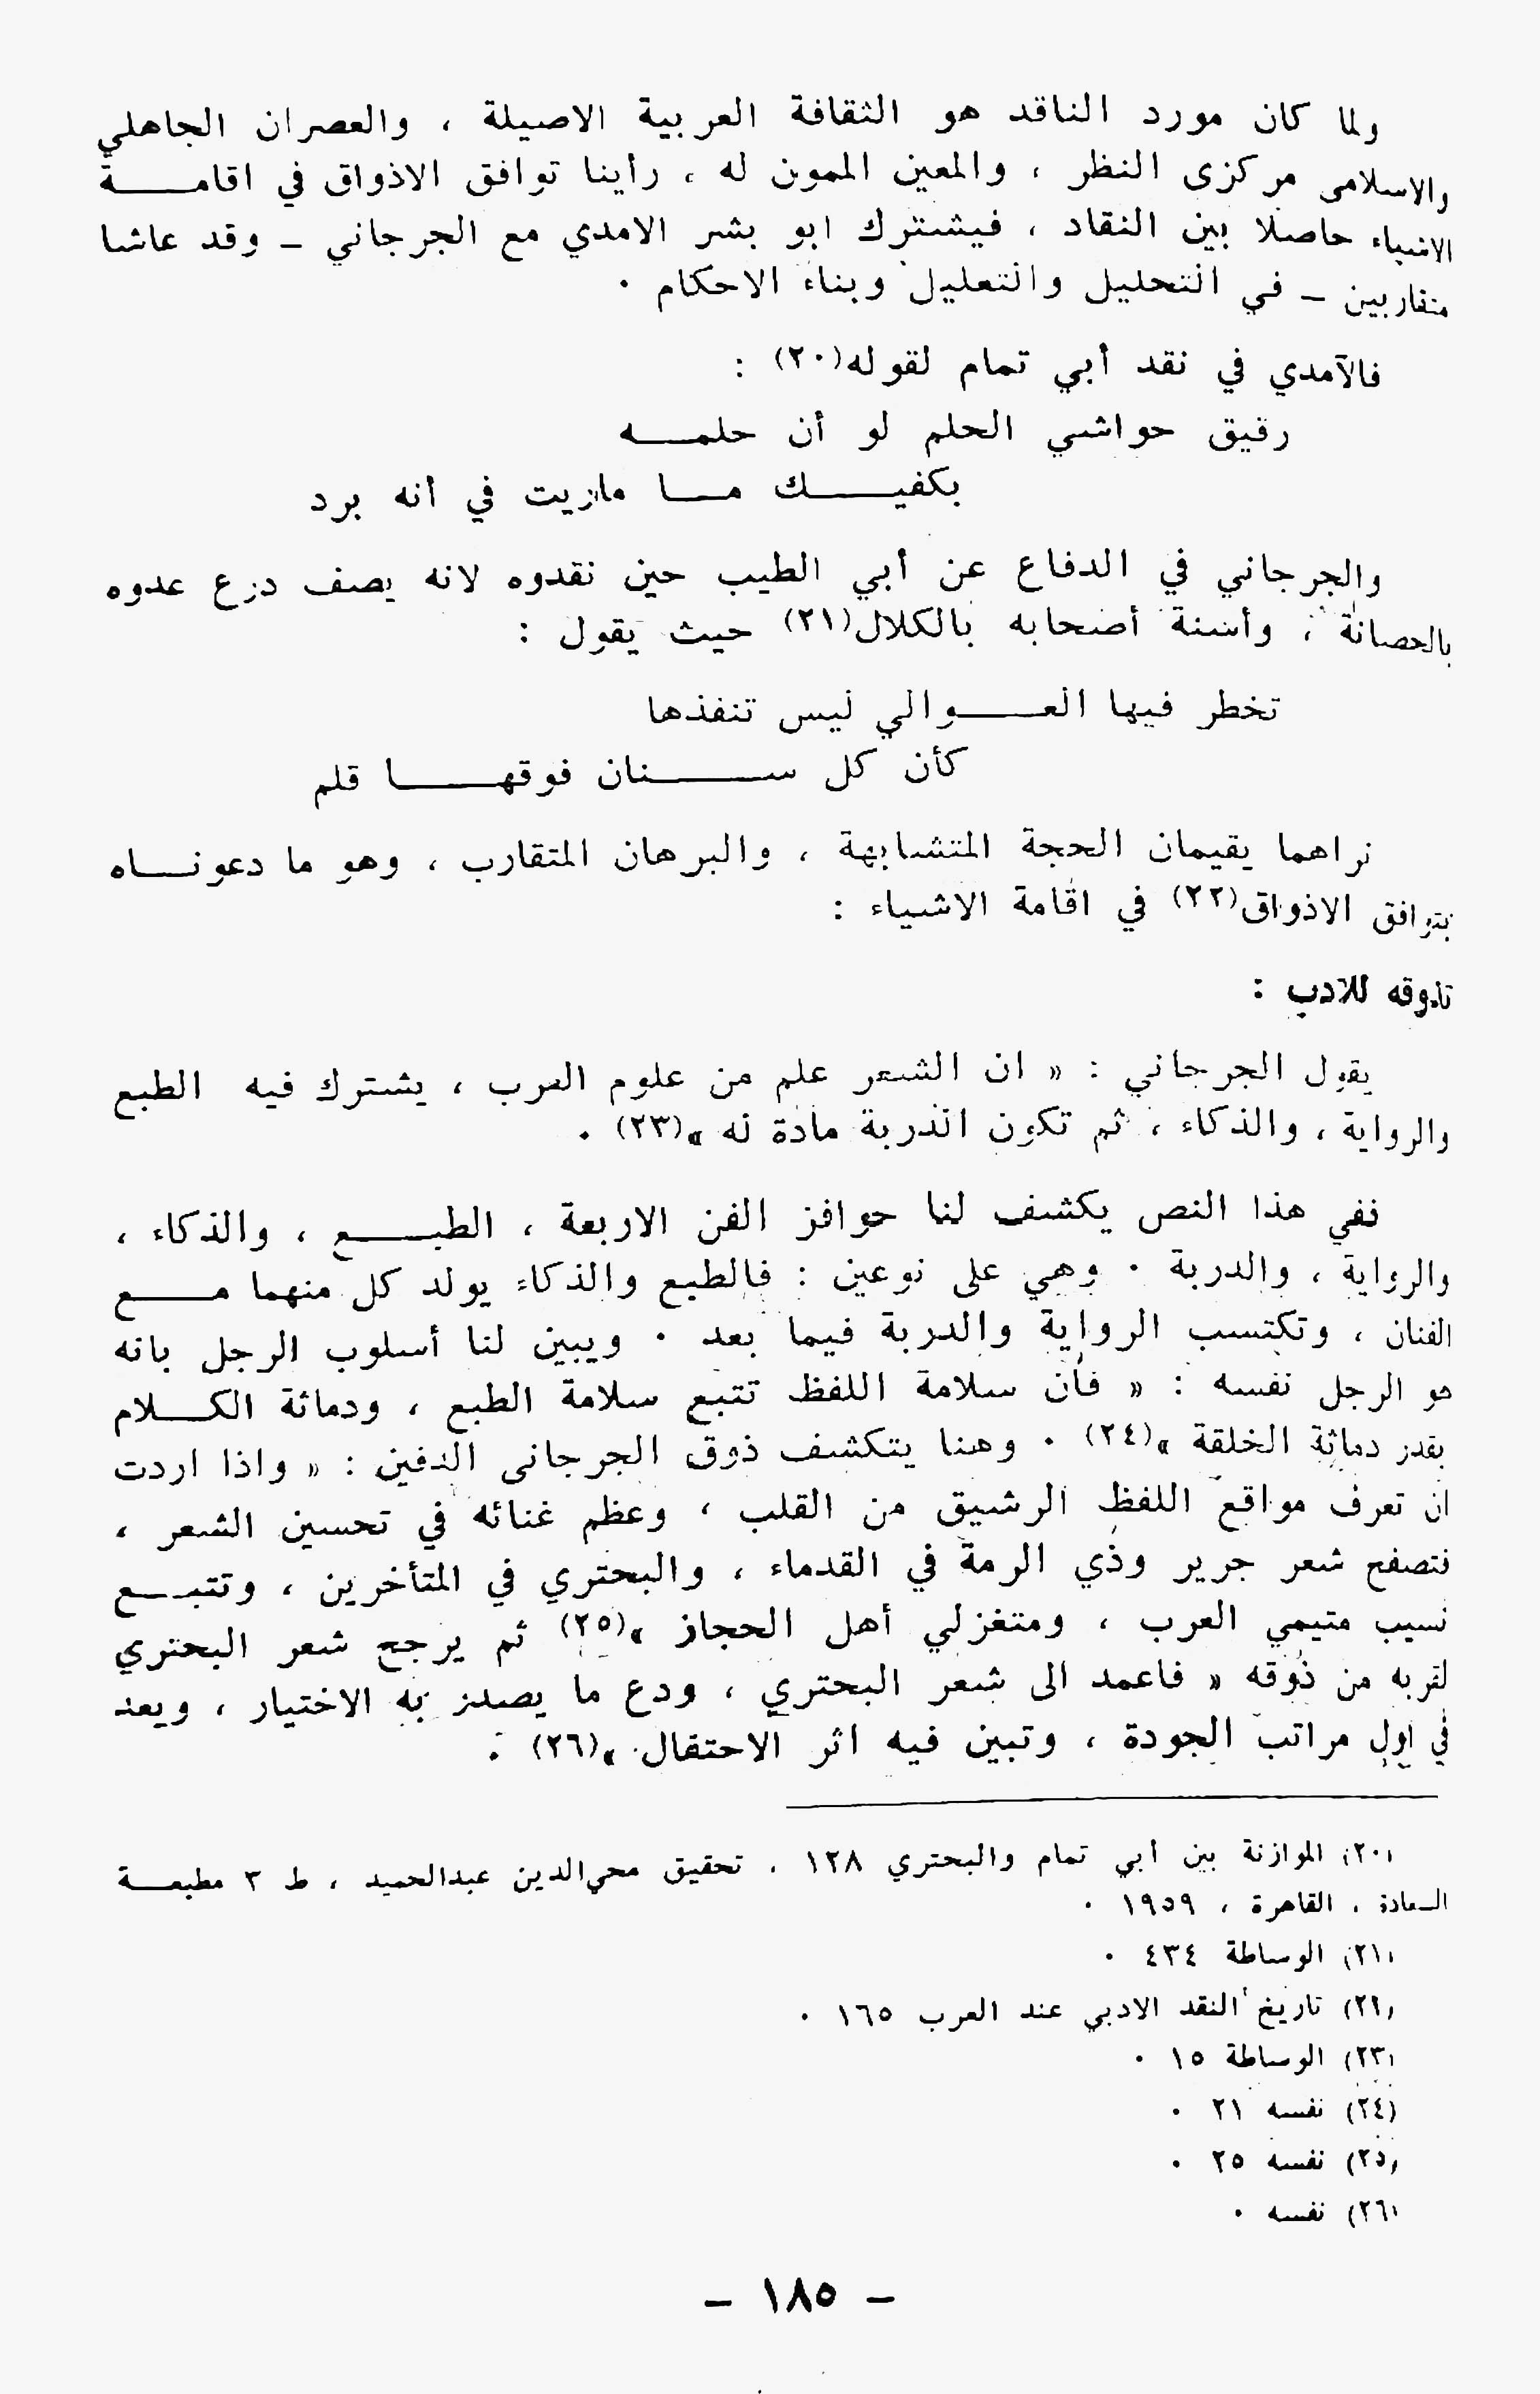 ولما كان مورد الناقد هو الثقافة العربية الاصيلة ، والعصران الجاهلي
والاسلامى مركزى النظر ، والمعين الممون له ، رأينا توافق الاذواق في اقامـــة
الاشياء حاصلا بين النقاد ، فيشترك ابو بشر الامدي مع الجرجاني – وقد عاشا
متقاربين – في التحليل والتعليل وبناء الاحكام ٠
فالآمدي في نقد أبي تمام لقوله(٢٠) :
رقيق حواشي الحلم لو أن حلمـــه
بكفيـــك مـــا ماريت في أنه برد
والجرجاني في الدفاع عن أبي الطيب حين نقدوه لانه يصف درع عدوه
بالحصانة ، وأسنة أصحابه بالكلال(٢١) حيث يقول :
تخطر فيها العـــوالي ليس تنفذها
كأن كل ســـنان فوقهـــا قلم
نراهما يقيمان الحجة المتشابهة ، والبرهان المتقارب ، وهو ما دعونـــاه
بتوافق الاذواق(٢٢) في اقامة الاشياء :
تذوقه للادب :
يقول الجرجاني : « ان الشعر علم من علوم العرب ، يشترك فيه الطبع
والرواية ، والذكاء ، ثم تكون الدربة مادة له »(٢٣) ٠
ففي هذا النص يكشف لنا حوافز الفن الاربعة ، الطبـــع ، والذكاء ،
والرواية ، والدربة ٠ وهي على نوعين : فالطبع والذكاء يولد كل منهما مـــع
الفنان ، وتكتسب الرواية والدربة فيما بعد ٠ ويبين لنا أسلوب الرجل بانه
هو الرجل نفسه : « فأن سلامة اللفظ تتبع سلامة الطبع ، ودماثة الكـــلام
بقدر دماثة الخلقة »(٢٤) ٠ وهنا يتكشف ذوق الجرجانى الدفين : « واذا اردت
ان تعرف مواقع اللفظ الرشيق من القلب ، وعظم غنائه في تحسين الشعر ،
فتصفح شعر جرير وذي الرمة في القدماء ، والبحتري في المتأخرين ، وتتبـــع
نسيب متيمي العرب ، ومتغزلي أهل الحجاز »(٢٥) ثم يرجح شعر البحتري
لقربه من ذوقه « فاعمد الى شعر البحتري ، ودع ما يصدر به الاختيار ، ويعد
في اول مراتب الجودة ، وتبين فيه اثر الاحتفال »(٢٦) ٠
(٢٠) الموازنة بين أبي تمام والبحتري ١٢٨ ، تحقيق محي‌الدين عبدالحميد ، ط ٣ مطبعـــة
السعادة ، القاهرة ، ١٩٥٩ ٠
(٢١) الوساطة ٤٣٤ ٠
(٢٢) تاريخ النقد الادبي عند العرب ١٦٥ ٠
(٢٣) الوساطة ١٥ ٠
(٢٤) نفسه ٢١ ٠
(٢٥) نفسه ٢٥ ٠
(٢٦) نفسه ٠
– ١٨٥ –